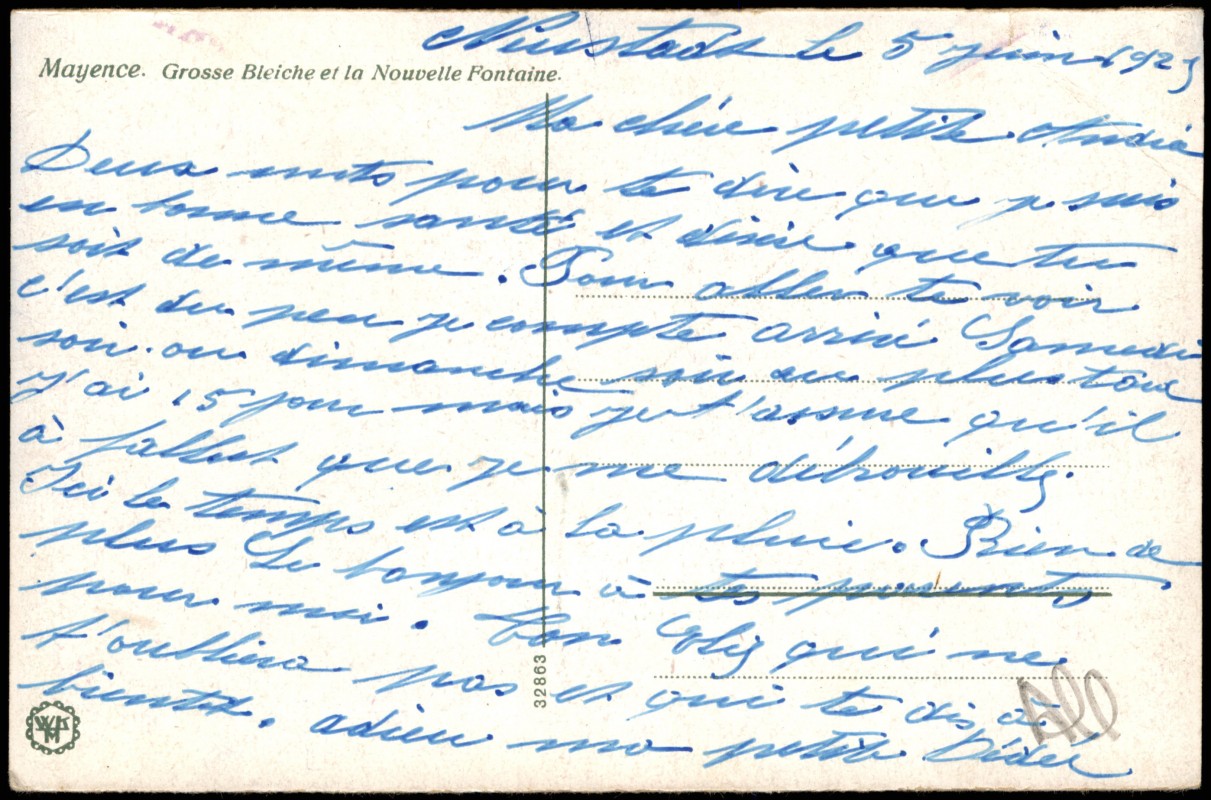 Neustadt le 5 juin 192
Mayence. Grosse Bleiche et la Nouvelle Fontaine.
Ma chère petite
Deux mots pour te dire que je suis
en bonne santé et désire que tu
soit de même. Pour aller te voir
c'est du peu je compte arrivé Samedi
soir ou dimanche soir au plus tard
J'ai 15 jour mais je t'assure qu'il
à fallut que je me débrouille.
Ici le temps est à la pluie. Rien de
plus Le bonjour à tes parents
pour moi. Ton qui ne
t'oubliera pas et qui te dis à
bientôt. adieu ma petite Dédée
32863
All